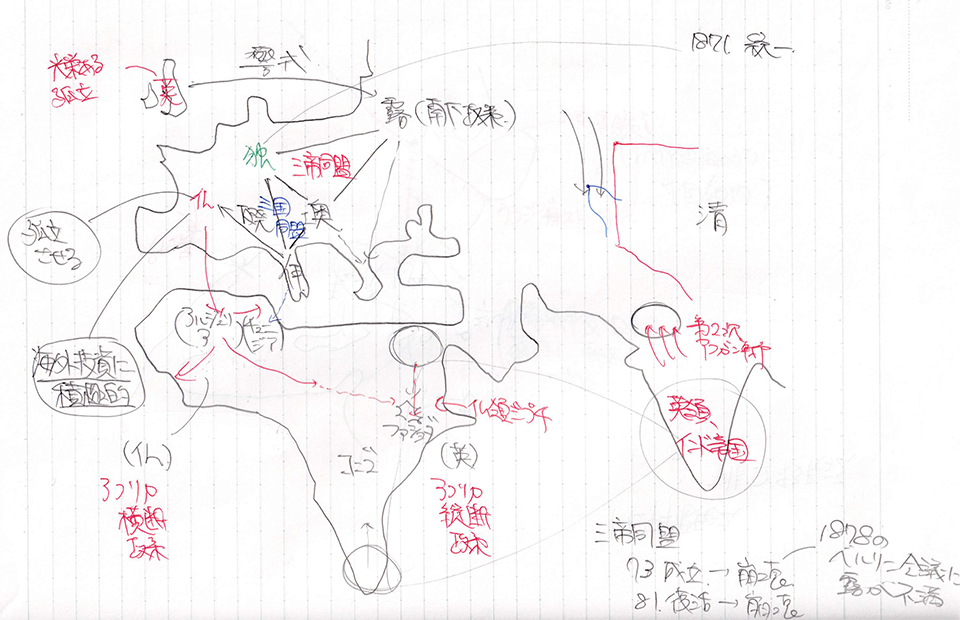 1871. 統一
光栄ある
孤立
英
警戒
露(南下政策)
独
三帝同盟
仏
三国
同盟
墺
伊
清
孤立
させる
アルジェリ
ア
チュニ
ジア
海外投資に
積極的
第2次
アフガン戦争
ファショダ
仏領ジブチ
英領
インド帝国
コンゴ
(仏)
アフリカ
横断
政策
(英)
アフリカ
縦断
政策
三帝同盟
73 成立 → 崩壊
81. 復活 → 崩壊
1878の
ベルリン会議に
露が不満